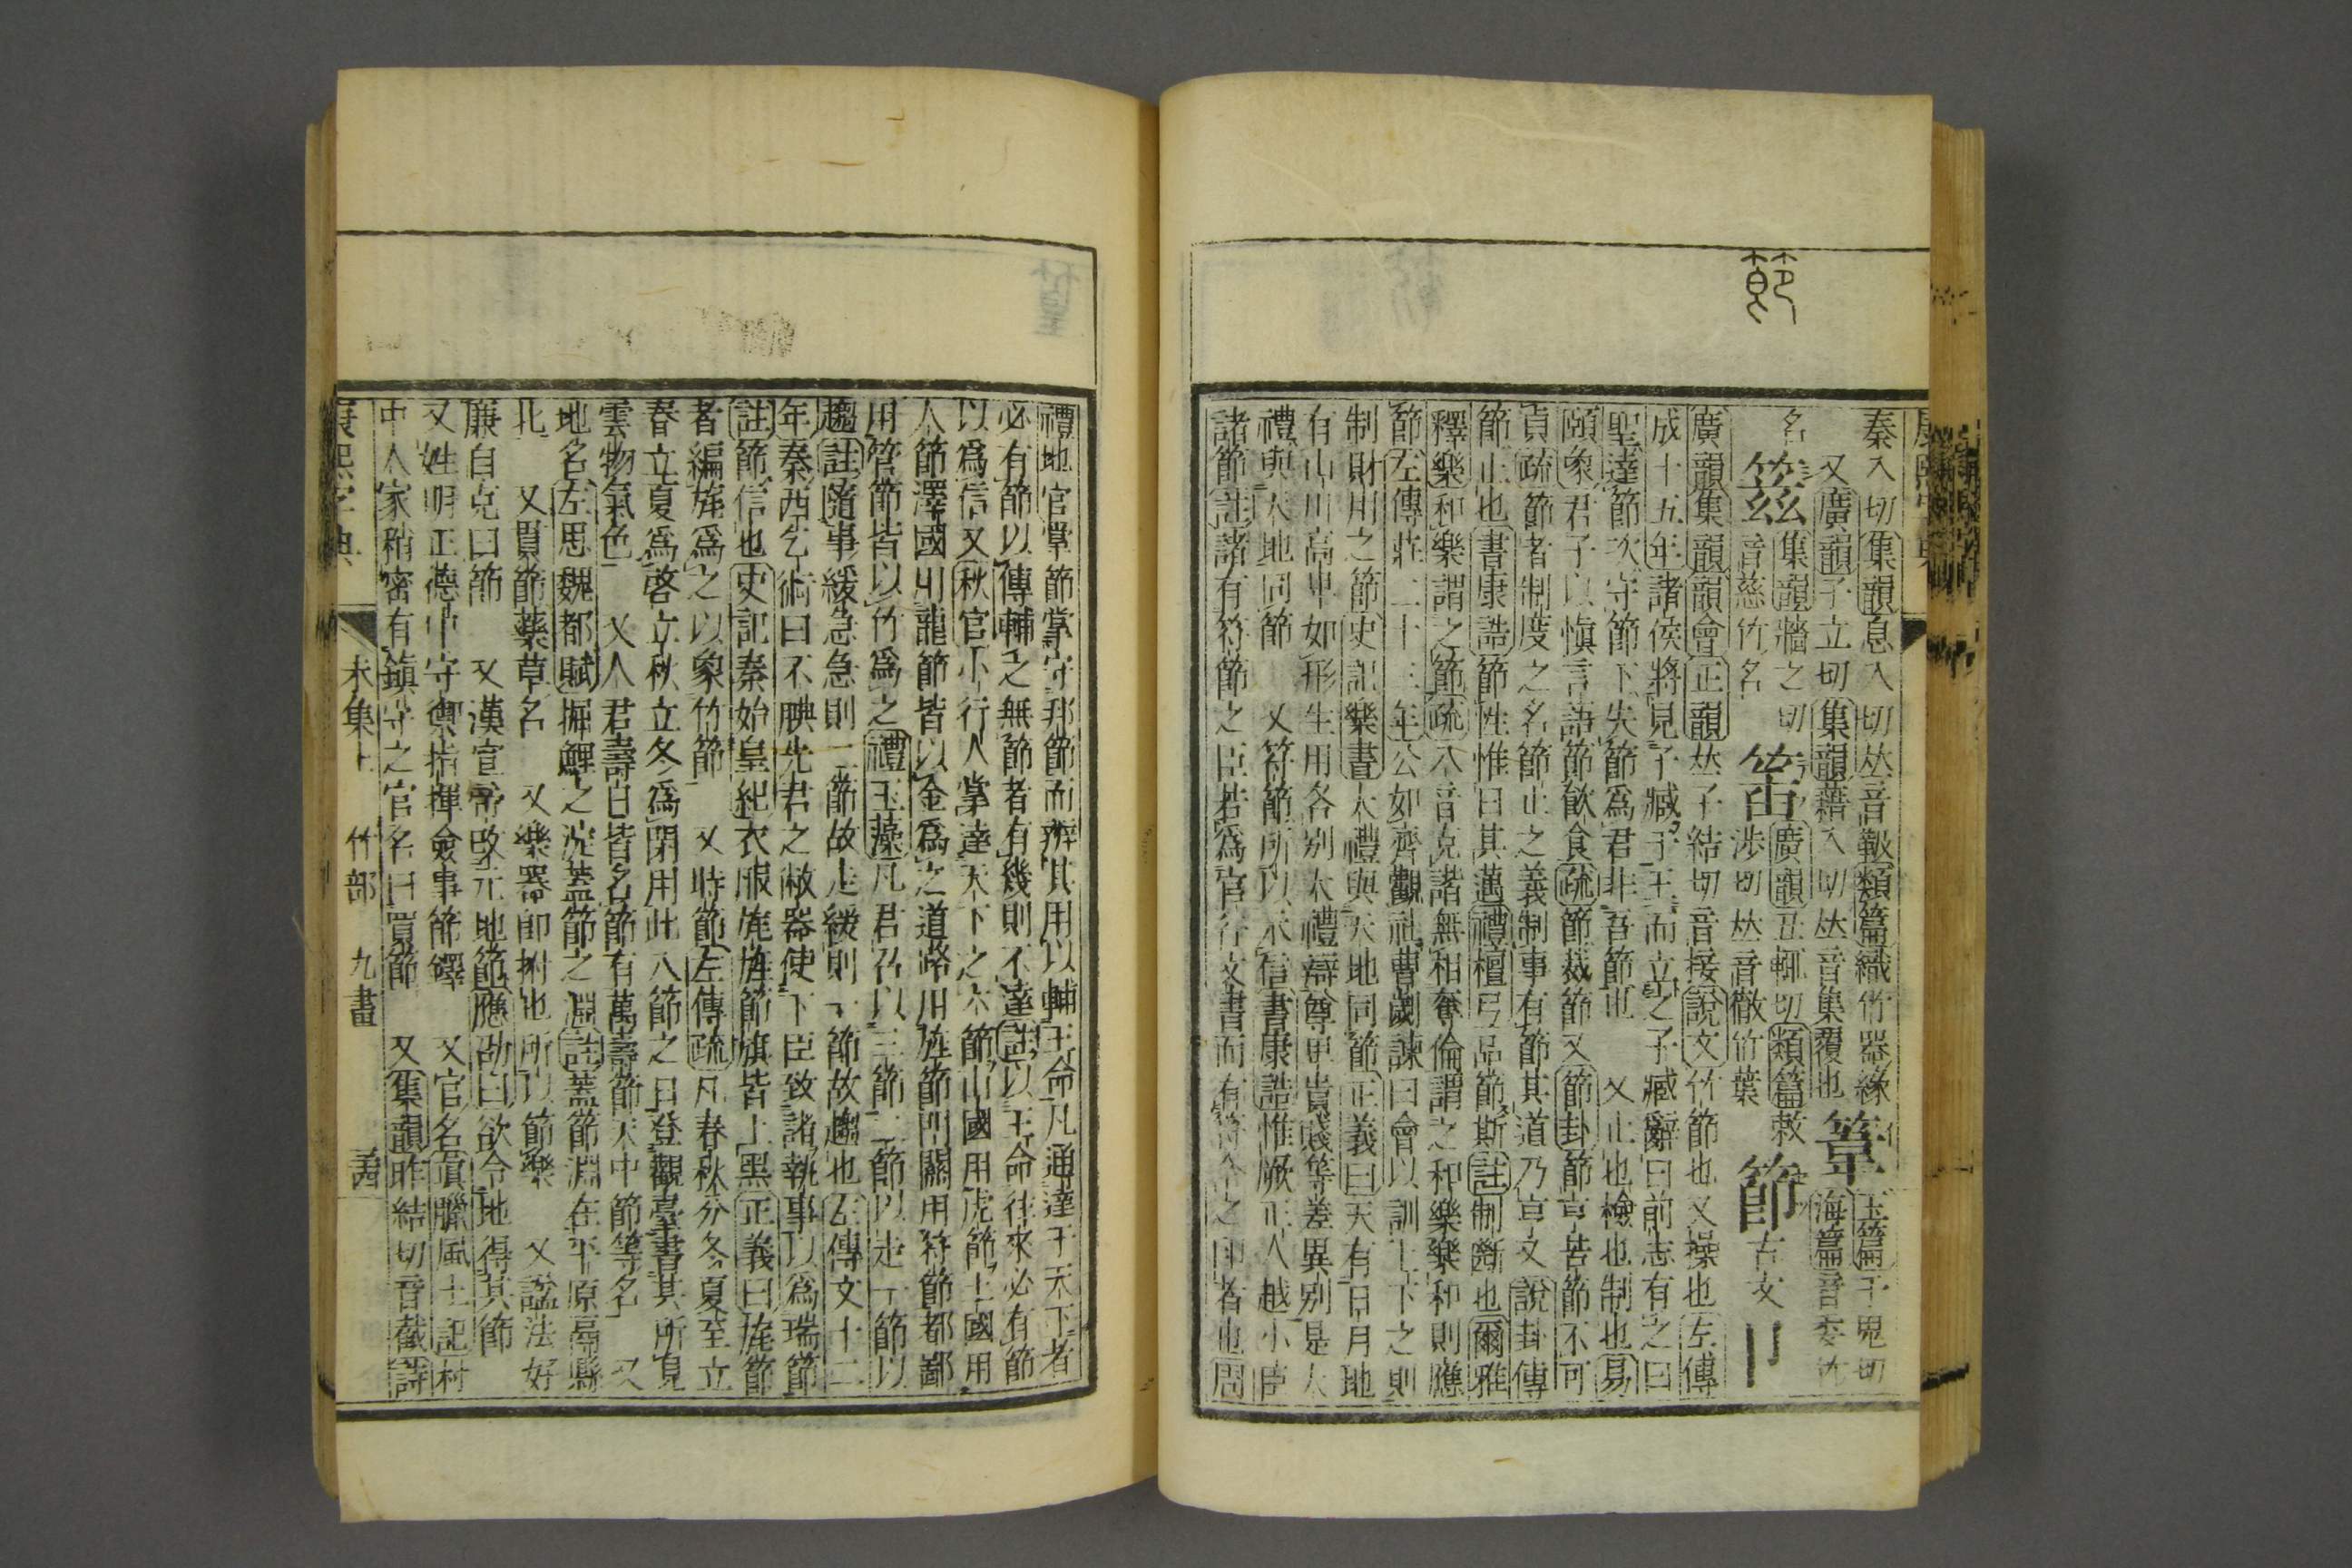 秦入切集韻息入切𠀤音㪪類篇織竹器緣
又廣韻子立切集韻藉入切𠀤音集覆也
篿
玉篇于鬼切
海篇音委竹
名
𥰭
集韻牆之切
音慈竹名
䈄
廣韻丑輒切類篇敕
涉切𠀤音徹竹葉
節
古文
卪
廣韻集韻韻會正韻𠀤子結切音接說文竹節也又操也左傳
成十五年諸侯將見子臧于王而立之子臧辭曰前志有之曰
聖達節次守節下失節爲君非吾節也 又止也檢也制也易
頤象君子以愼言語節飮食疏節裁節又節卦節亨苦節不可
貞疏節者制度之名節止之義制事有節其道乃亨又說卦傳
節止也書康誥節性惟日其邁禮檀弓品節斯註制斷也爾雅
釋樂和樂謂之節疏八音克諧無相奪倫謂之和樂樂和則應
節左傳莊二十三年公如齊觀社曹劌諫曰會以訓上下之則
制財用之節史記樂書大禮與天地同節正義曰天有日月地
有山川高卑如形生用各別大禮辯尊卑貴賤等差異別是大
禮與天地同節 又符節所以示信書康誥惟厥正人越小臣
諸節註諸有符節之臣若爲官行文書而有符令之印者也周
禮地官掌節掌守邦節而辨其用以輔王命凡通達于天下者
必有節以傳輔之無節者有幾則不達註以王命往來必有節
以爲信又秋官小行人掌達天下之六節山國用虎節土國用
人節澤國用龍節皆以金爲之道路用旌節門關用符節都鄙
用管節皆以竹爲之禮玉藻凡君召以三節二節以走一節以
趨註隨事緩急急則二節故走緩則一節故趨也左傳文十二
年秦西乞術曰不腆先君之敝器使下臣致諸執事以爲瑞節
註節信也史記秦始皇紀衣服旄旌節旗皆上黑正義曰旄節
者編旄爲之以象竹節 又時節左傳疏凡春秋分冬夏至立
春立夏爲啓立秋立冬爲閉用此八節之日登觀臺書其所見
雲物氣色 又人君壽日皆名節有萬壽節天中節等名 又
地名左思魏都賦掘鯉之淀蓋節之淵註蓋節淵在平原鬲縣
北 又貫節藥草名 又樂器卽拊也所以節樂 又諡法好
廉自克曰節 又漢宣帝改元地節應劭曰欲令地得其節
又姓明正德中守禦指揮僉事節鐸 又官名眞臘風土記村
中人家稍密有鎭守之官名曰買節 又集韻昨結切音截詩
康熙字典 未集上 竹部 九畫